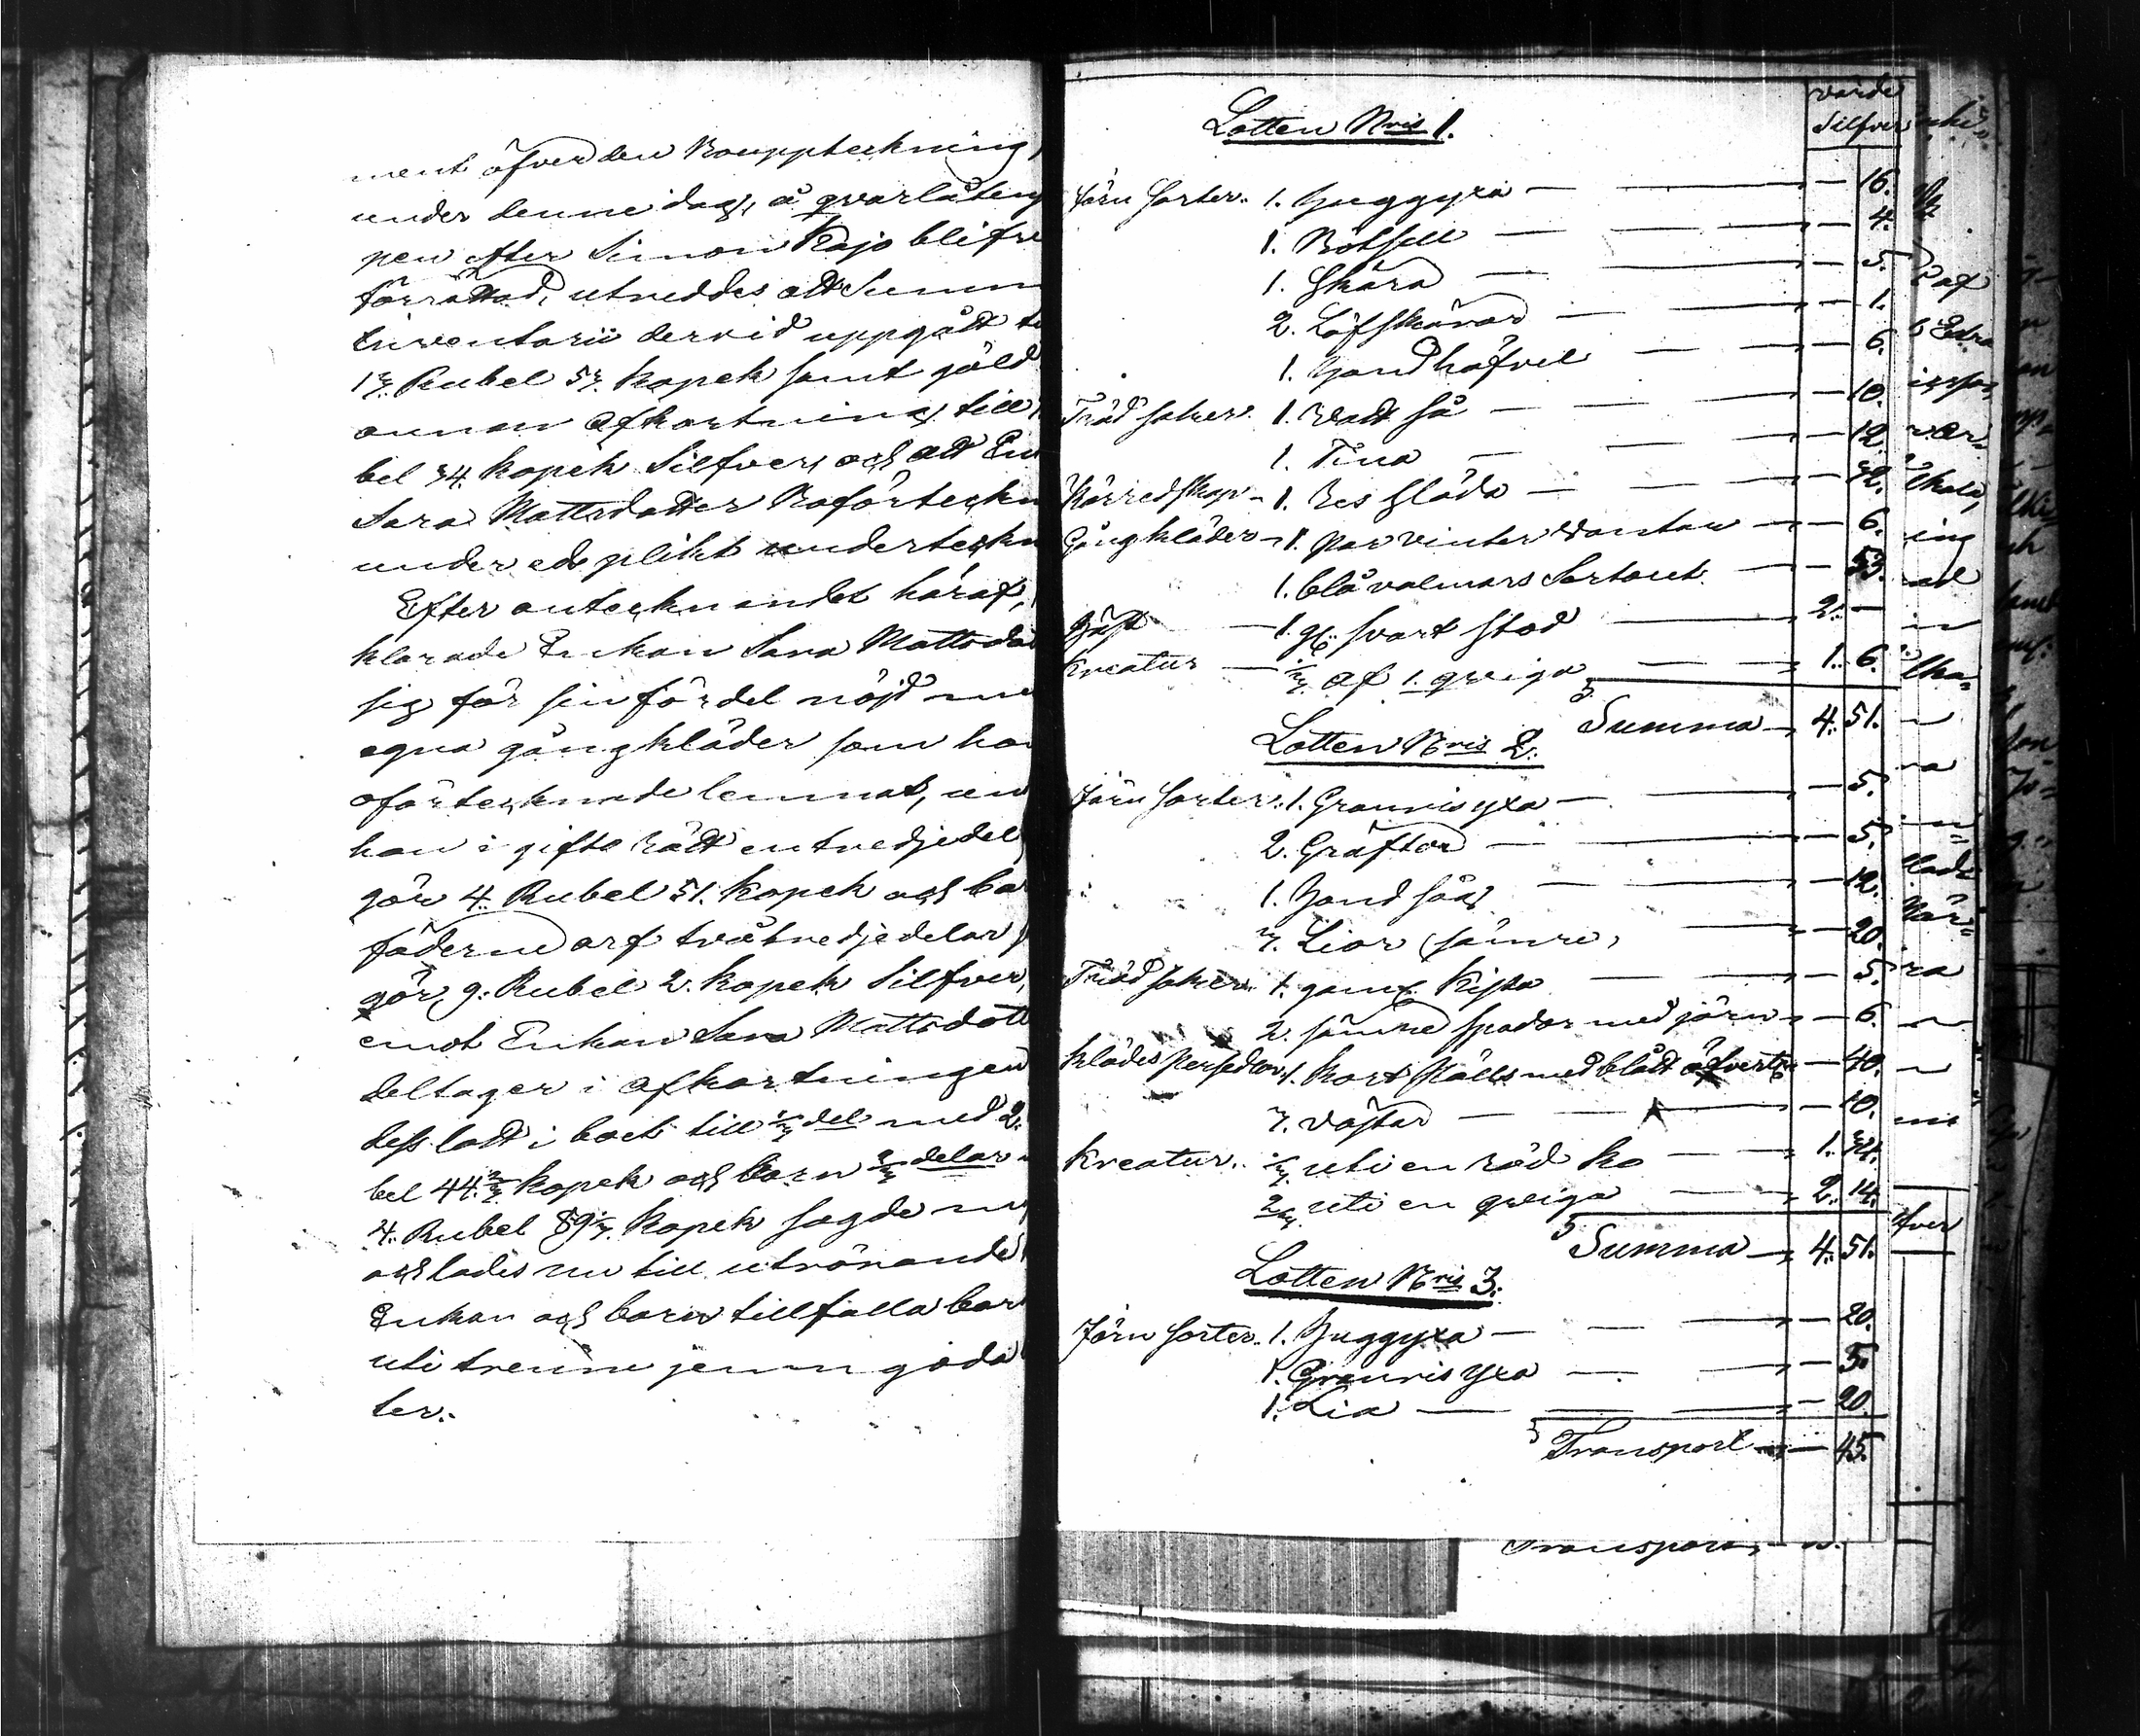 ment öfver den Bouppteckning,
under denne dag, å qvarlåten
pen efter Simon Kajo blifve
förrättad, utreddes att Summ
Inventarii dervid uppgått t
13. Rubel 53. kopek samt gäld
annan afkortning till
bel 34. kopek Silfver, och att En
Sara Mattsdotter Boförteckn
under eds plikt underteckn
Efter antecknandet häraf,
klarade Enkan Sara Mattsdo
sig för sin fördel nöjd me
egna gångkläder som ha
oförtecknade lemnat, un
hon i giftorätt entredjedel
gör 4. Rubel 51. kopek och ba
fäderne arf tvåtredjedelar
gör, 9. Rubel 2. kopek Silfver,
emot Enkan Sara Mattsdott
deltager i afkortningen
dess lott i boet till 1/3 del med 2.
bel 44 2/3 kopek och barn 2/3 delar
4. Rubel 89 1/3. kopek sagde
och lades nu till utrönande
Enkan och barn tillfalla bör
uti trenne jemn goda
ter.
värde
Silfver
Lotten Nris 1.
Järn sorter. 1. Huggyxa — — — 16.
1. Bölsell — — — 4.
1. Skära — — — 5.
2. Löfskäror — — — 1.
1. Handhöfvel — — — 6.
Träd saker. 1. Vatt så — — — 10.
1. Tina — — — 12.
Körredskap - 1. Res släda — — — 32.
Gångkläder - 1. par vinter vantar — — 6.
1. blå valmars Sortout — — 53.
Häst — 1. gl. svart stod — 2. —
Kreatur — 1/3 af 1. qviga — 1. 6.
Summa — 4. 51.
Lotten Nris 2.
Järn sorter. 1. Granrisyxa — — — 5.
2. Gräftor — — — 5.
1. Hand såg — — — 12.
3. Lior sämre, — — 20.
Träd saker. 1. gaml. Kista — — — 5.
2. sämre spador med järn — — 6.
Klädespersedlar. 1. kort Päls med blått öfvert. — 40.
3. västar — — — 10.
Kreatur. 1/3 uti en röd ko — 1. 34.
2/3 uti en qviga — 2. 14.
Summa — 4. 51.
Lotten Nris 3.
Järn sorter. 1. Huggyxa — — — 20.
1. Granris yxa — — — 5.
1. Lia — — — 20.
Transport — — 45.
Transport